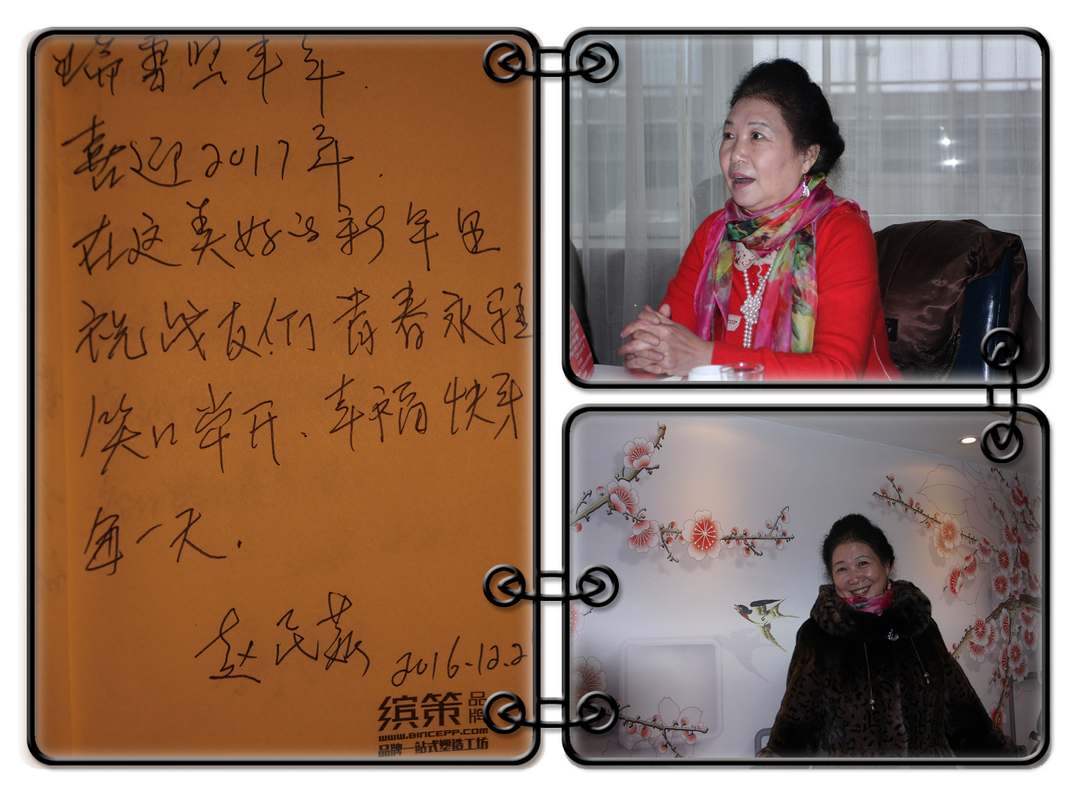 瑞雪照丰年.
喜迎2017年.
在这美好的新年里
祝战友们青春永驻
笑口常开、幸福快乐
每一天.
赵民 2016.12.2
缤策品牌
WWW.BINCEPP.COM
品牌一站式塑造工坊